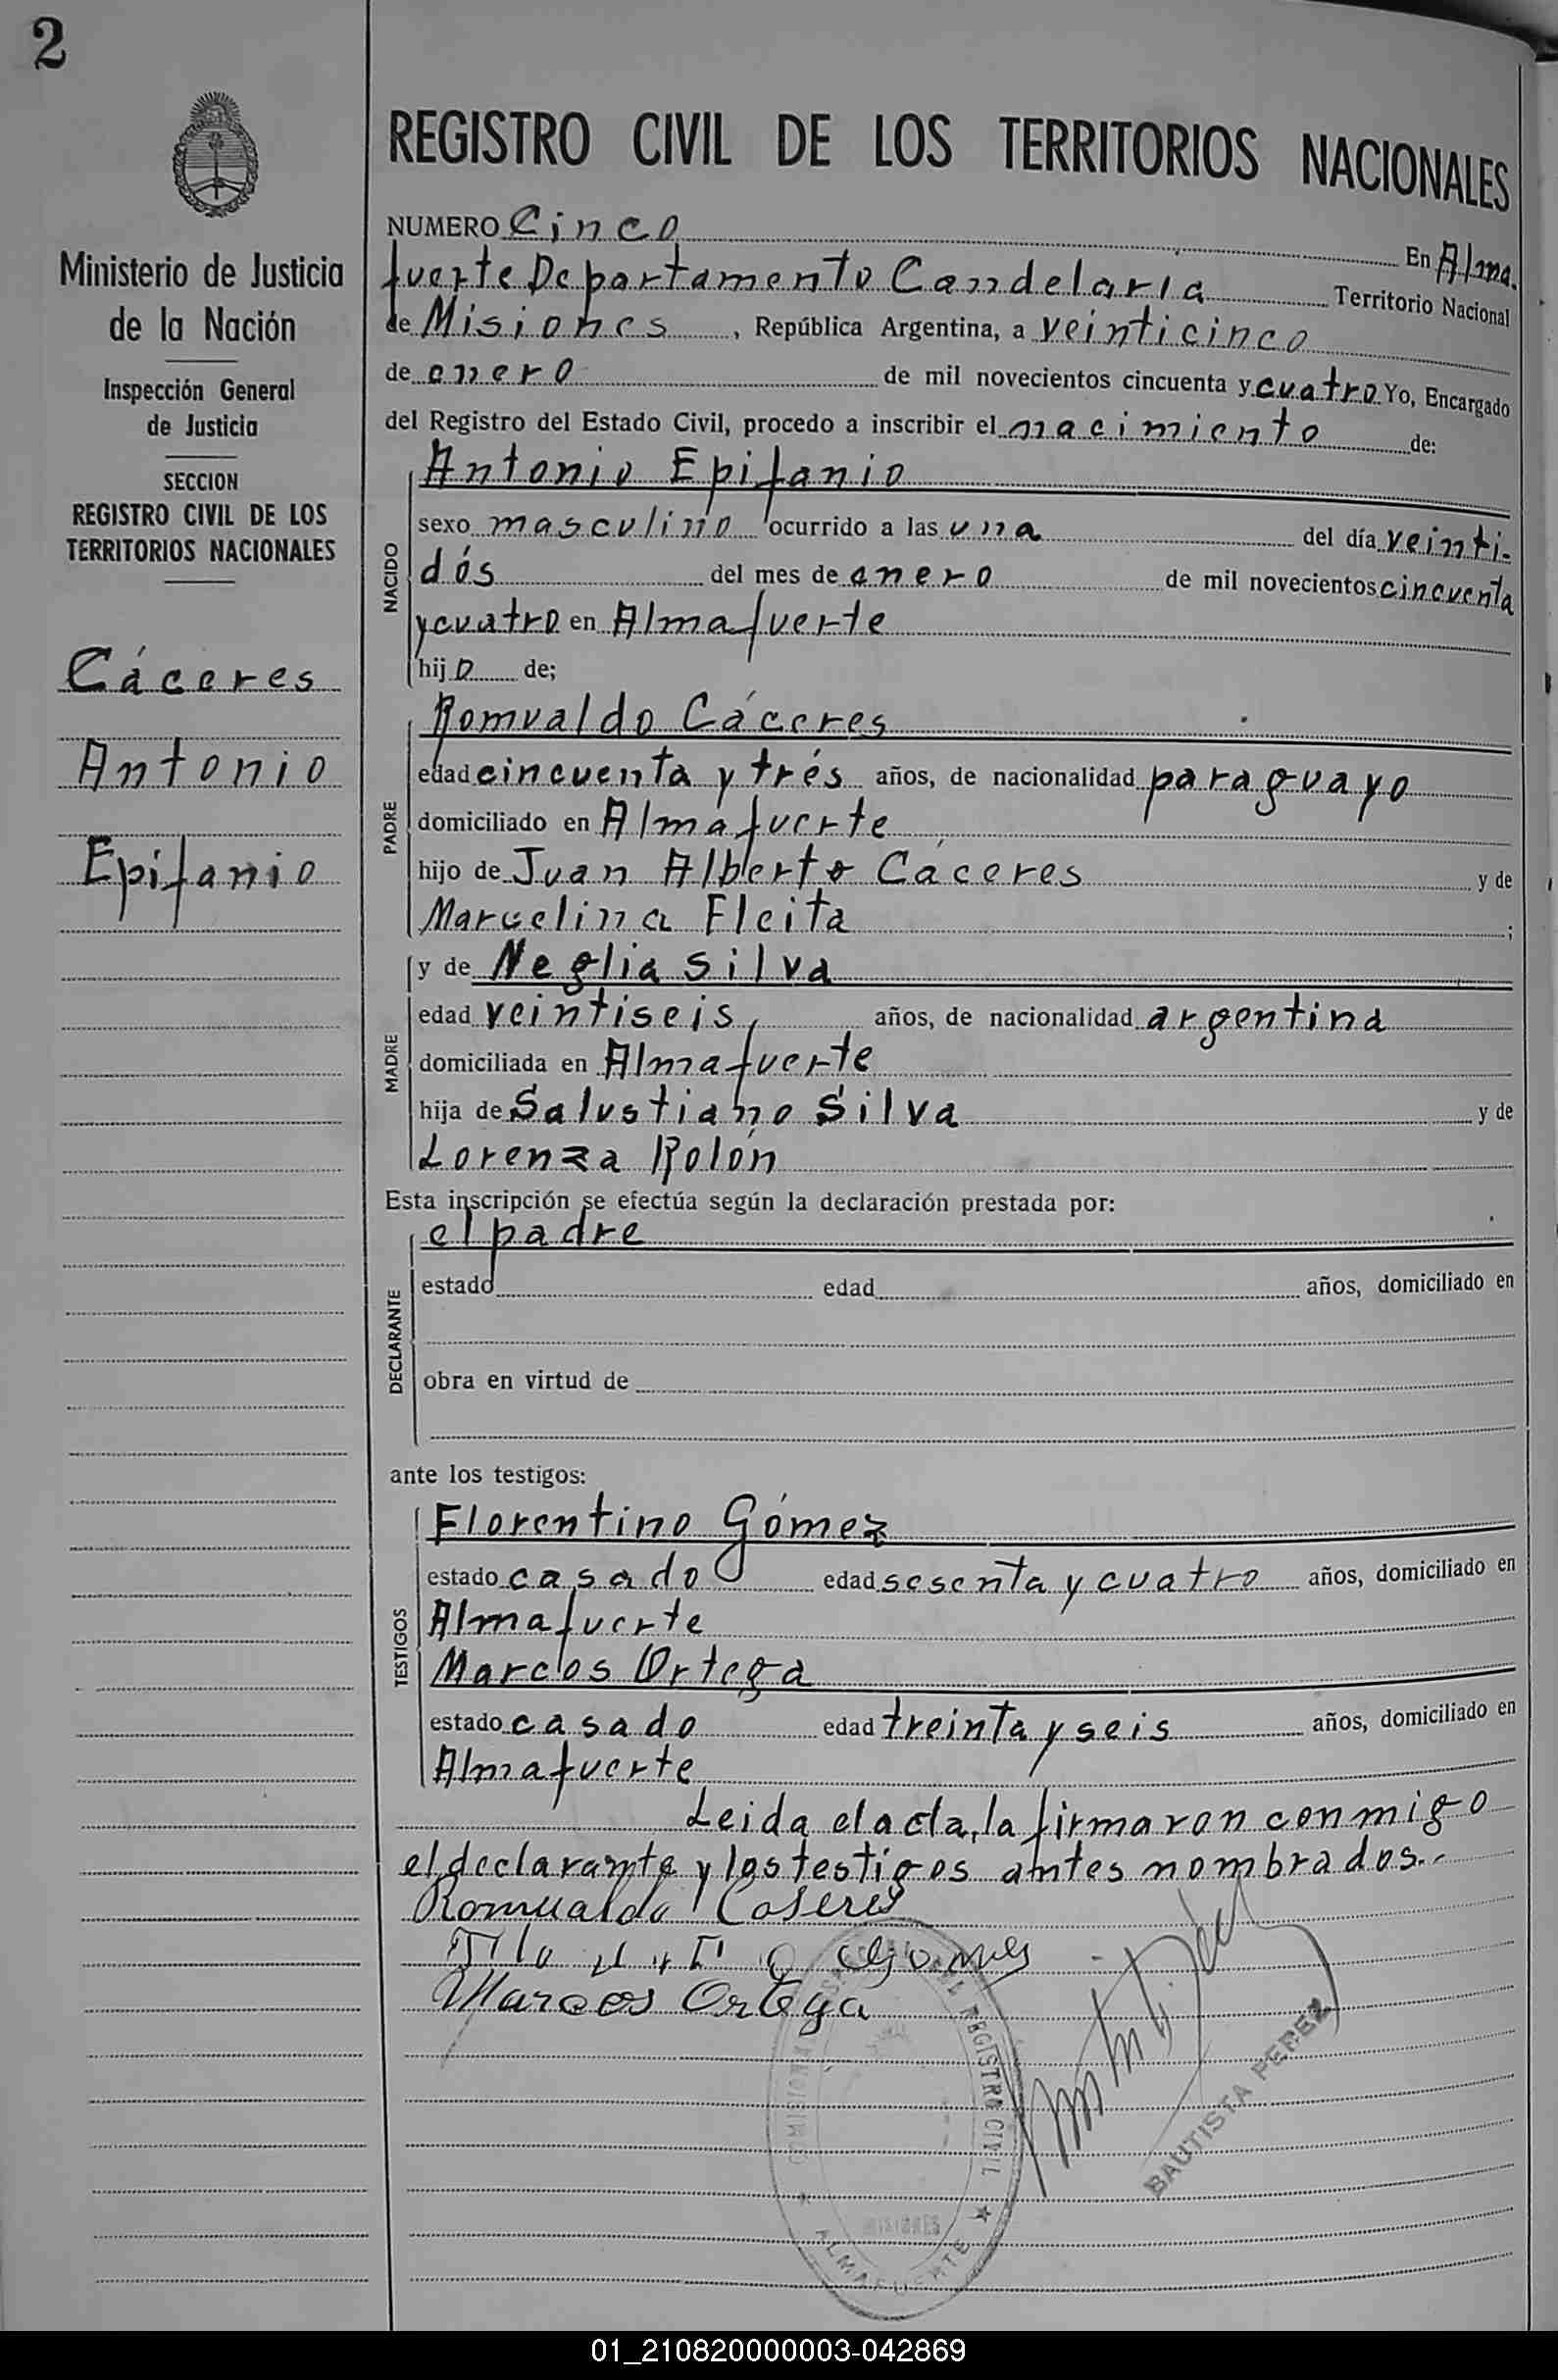 2
Ministerio de Justicia
de la Nación
Inspección General
de Justicia
SECCION
REGISTRO CIVIL DE LOS
TERRITORIOS NACIONALES
Cáceres
Antonio
Epifanio
REGISTRO CIVIL DE LOS TERRITORIOS NACIONALES
NUMERO Cinco En Alma.
fuerte Departamento Candelaria Territorio Nacional
de Misiones, República Argentina, a veinticinco
de enero de mil novecientos cincuenta y cuatro Yo, Encargado
del Registro del Estado Civil, procedo a inscribir el nacimiento de:
NACIDO
Antonio Epifanio
sexo masculino ocurrido a las una del día veinti-
dós del mes de enero de mil novecientos cincuenta
y cuatro en Almafuerte
hijo de;
PADRE
Romualdo Cáceres
edad cincuenta y trés años, de nacionalidad paraguayo
domiciliado en Almafuerte
hijo de Juan Alberto Cáceres y de
Marcelina Fleita ;
MADRE
y de Neglia Silva
edad veintiseis años, de nacionalidad argentina
domiciliada en Almafuerte
hija de Salustiano Silva y de
Lorenza Rolón
Esta inscripción se efectúa según la declaración prestada por:
DECLARANTE
el padre
estado edad años, domiciliado en
obra en virtud de
ante los testigos:
TESTIGOS
Florentino Gómez
estado casado edad sesenta y cuatro años, domiciliado en
Almafuerte
Marcos Ortega
estado casado edad treinta y seis años, domiciliado en
Almafuerte
Leida el acta, la firmaron conmigo
el declarante y los testigos antes nombrados.-
Romualdo Caseres
Marcos Ortega
REGISTRO CIVIL
MISIONES
ALMAFUERTE
BAUTISTA PEREZ
01_210820000003-042869